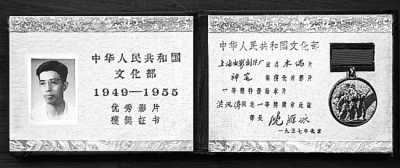 中华人民共和国
文化部
1949—1955
优秀影片
获奖证书
中华人民共和国文化部
上海电影制片厂出品木偶片
神笔 荣获优秀影片
一等奖特发给本片
同志一等奖奖章为证
部长
一九五七年北京